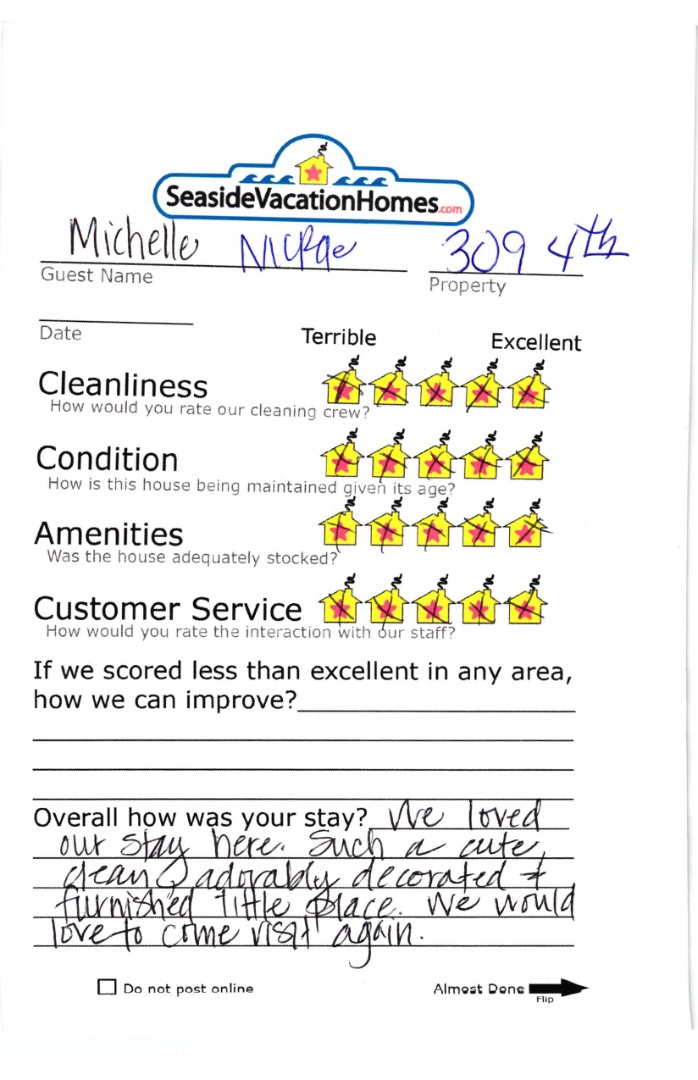 SeasideVacationHomes.com
Michelle McRae 309 4th
Guest Name Property
Date Terrible Excellent
Cleanliness
How would you rate our cleaning crew?
Condition
How is this house being maintained given its age?
Amenities
Was the house adequately stocked?
Customer Service
How would you rate the interaction with our staff?
If we scored less than excellent in any area,
how we can improve?
Overall how was your stay? We loved
our stay here. Such a cute,
clean & adorably decorated &
furnished little place. We would
love to come visit again.
Do not post online Almost Done
Flip